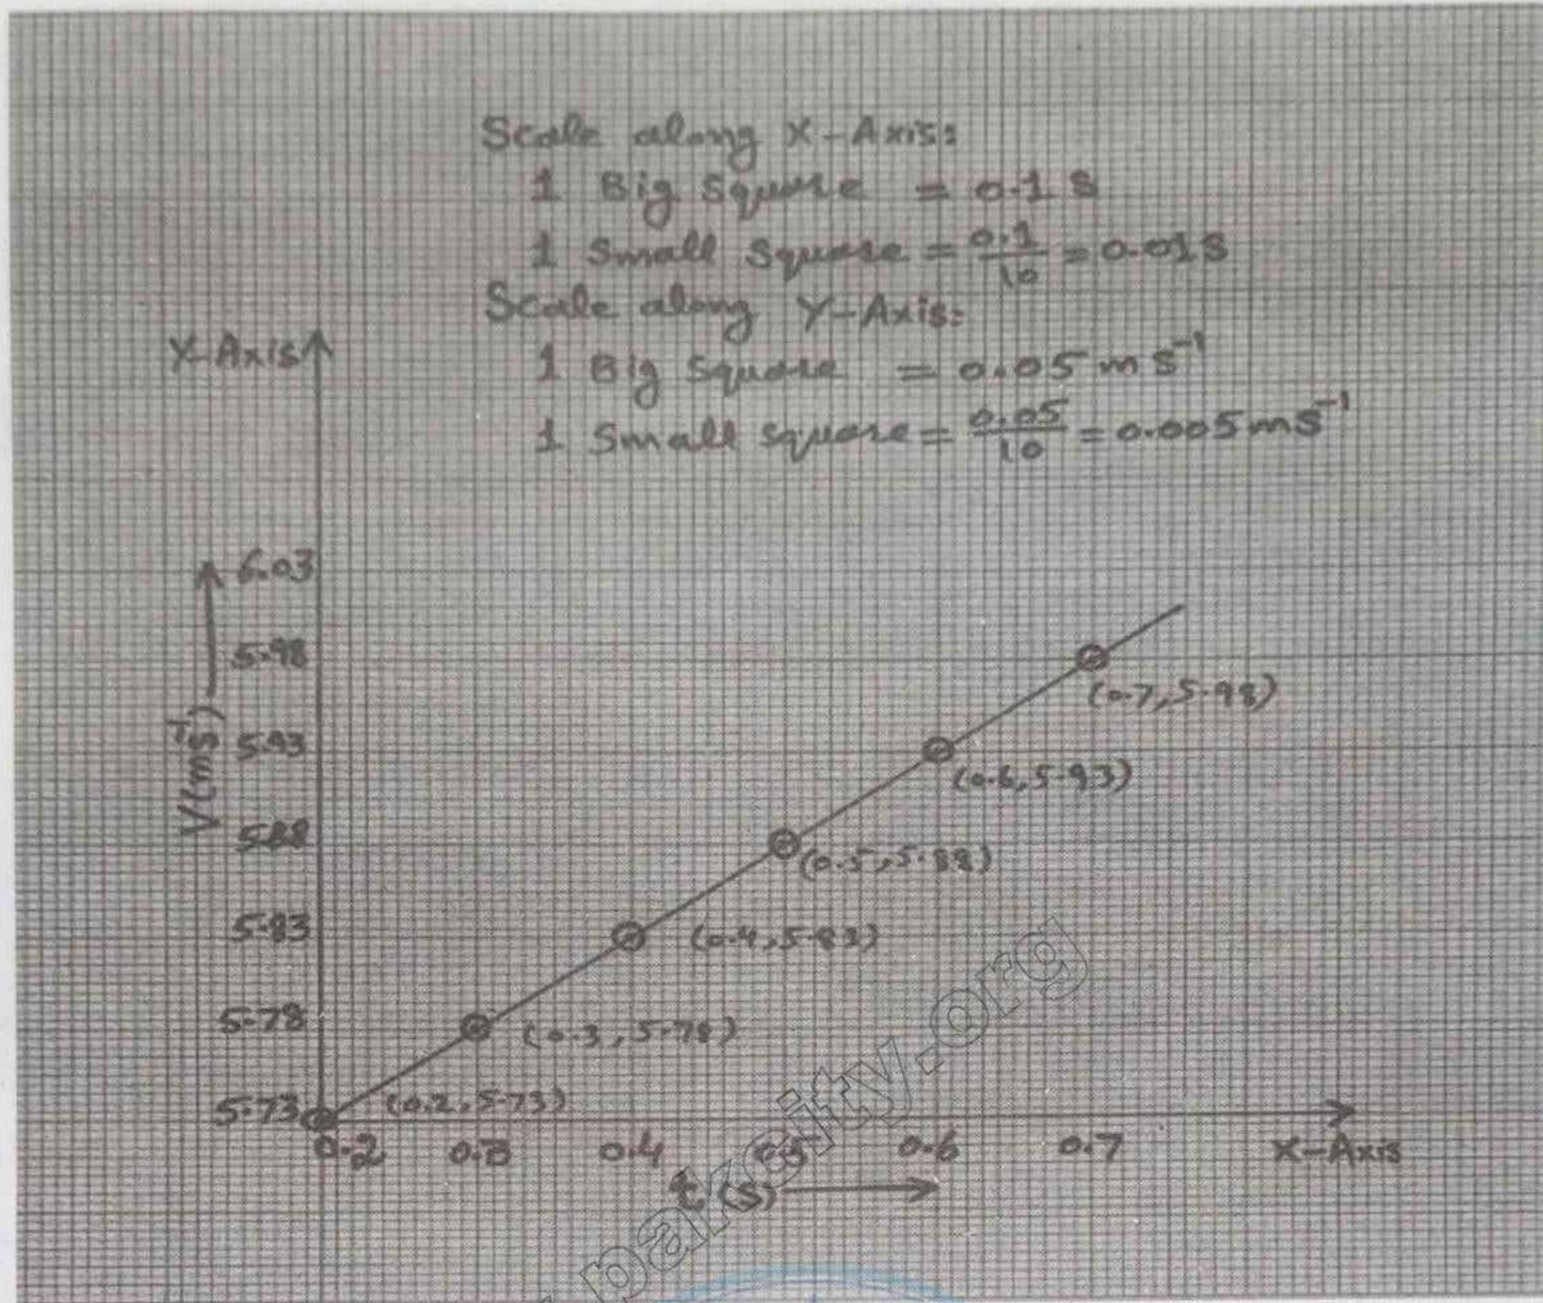 Scale along X-Axis:
1 Big Square = 0.1 S
1 Small Square = 0.1/10 = 0.01 S
Scale along Y-Axis:
1 Big Square = 0.05 m s⁻¹
1 Small square = 0.05/10 = 0.005 m s⁻¹
Y-Axis
6.03
5.98
5.93
5.88
5.83
5.78
5.73
V(ms⁻¹)
(0.7, 5.98)
(0.6, 5.93)
(0.5, 5.88)
(0.4, 5.83)
(0.3, 5.78)
(0.2, 5.73)
0.2 0.3 0.4 0.5 0.6 0.7 X-Axis
t (s)